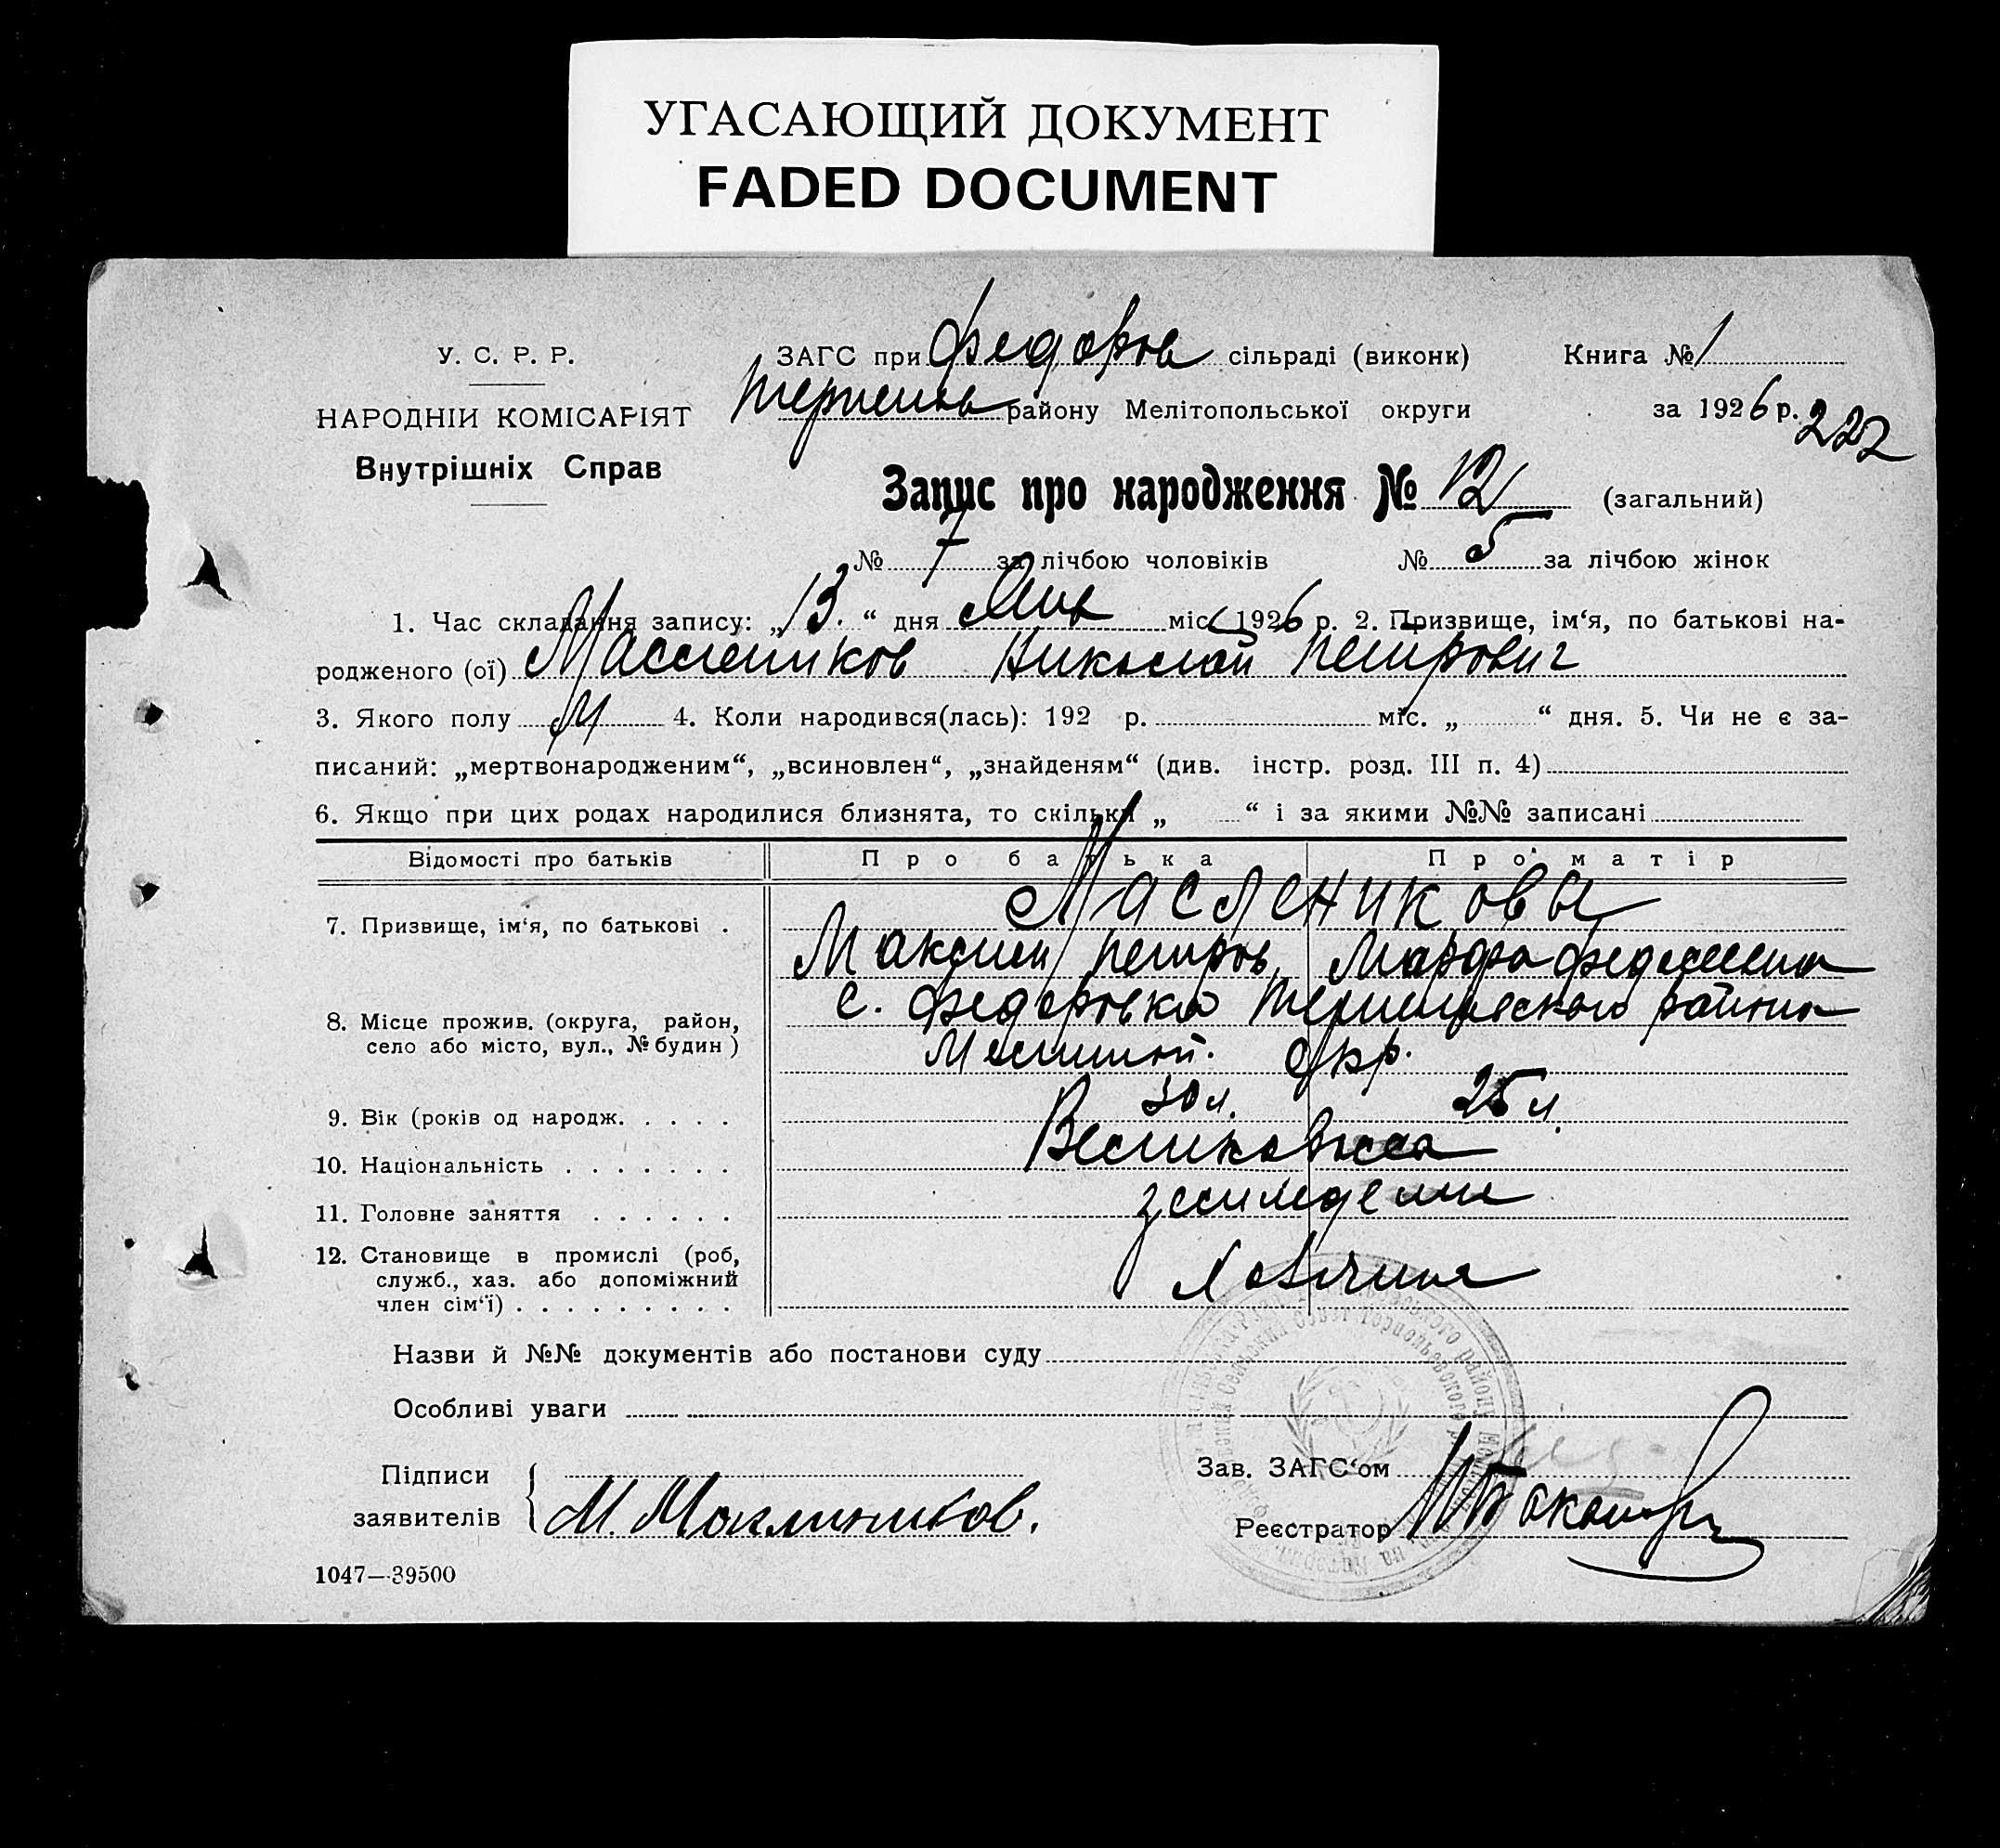 УГАСАЮЩИЙ ДОКУМЕНТ
FADED DOCUMENT
У. С. Р. Р.
НАРОДНІЙ КОМІСАРІЯТ
Внутрішніх Справ
ЗАГС при Федоров сільраді (виконк) Книга № 1
району Мелітопольської округи за 1926 р. 222
Запис про народження № 12 (загальний)
№ 7 за лічбою чоловіків № 5 за лічбою жінок
1. Час складання запису: „13.“ дня Янв міс 1926 р. 2. Призвище, ім‘я, по батькові на-
родженого (ої) Маслеников Николай Петрович
3. Якого полу М 4. Коли народився(лась): 192 р. міс. „ “ дня. 5. Чи не є за-
писаний: „мертвонародженим“, „всиновлен“, „знайденям“ (див. інстр. розд. III п. 4)
6. Якщо при цих родах народилися близнята, то скільки „ “ і за якими №№ записані
Відомості про батьків Про батька Про матір
7. Призвище, ім‘я, по батькові . Маслениковы
Петров, Марфа
8. Місце прожив. (округа, район, село або місто, вул., № будин) с. Федоровка района
Окр.
9. Вік (років од народж. . . . . 30 л. 25 л.
10. Національність . . . . . . .
11. Головне заняття . . . . . .
12. Становище в промислі (роб, служб., хаз. або допоміжний член сім‘ї) . . . . . . . . .
Назви й №№ документів або постанови суду
Особливі уваги
Підписи заявителів М. Маслеников.
Зав. ЗАГС‘ом
Реєстратор
1047—39500